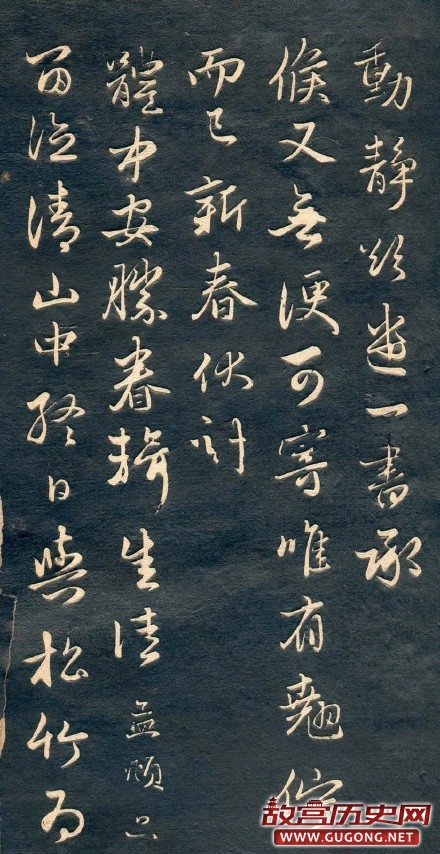 動靜欲遣一書承
候又無便可寄唯有翹佇
而已新春伏計
體中安勝眷輯生佳孟頫只
留德清山中終日與松竹為
故宫历史网
WWW.GUGONG.NET